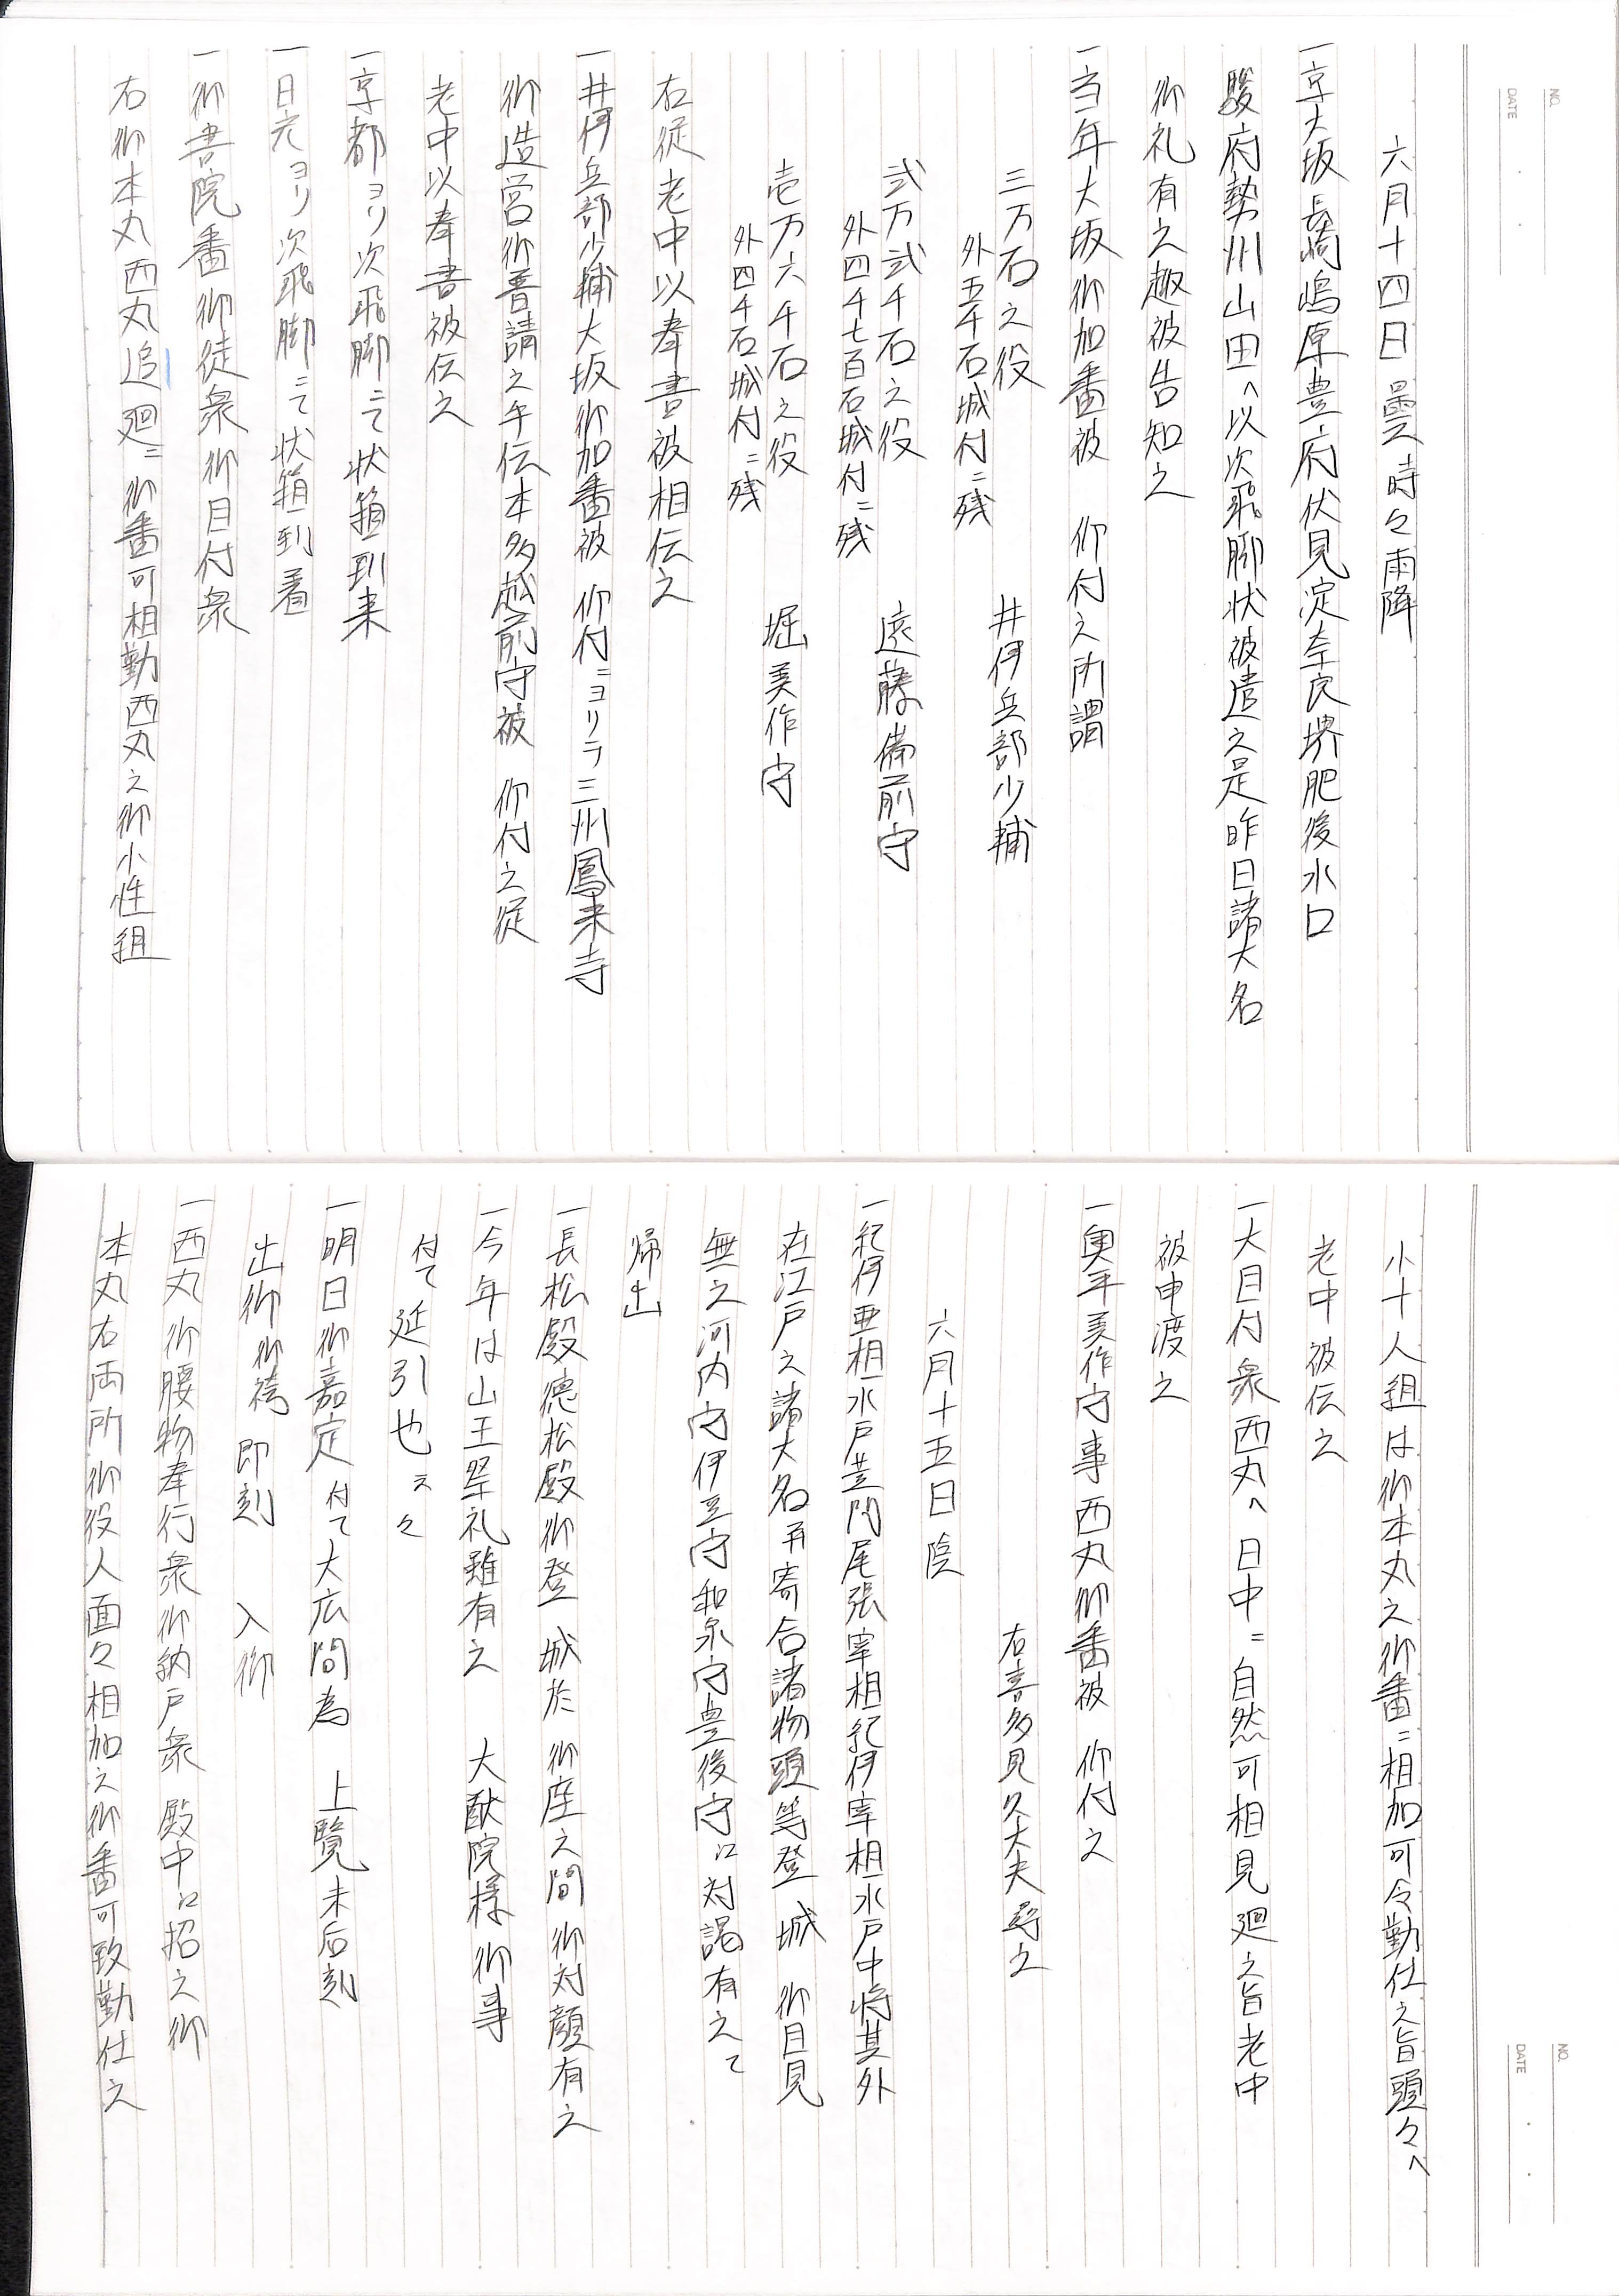 NO.
DATE
六月十四日曇時々雨降
一京大坂長崎嶋原豊府伏見淀奈良堺肥後水口
駿府勢州山田へ以次飛脚状被遣之是昨日諸大名
御礼有之趣被告知之
一当年大坂御加番被 仰付之所謂
三万石之役 井伊兵部少輔
外五千石城付ニ残
弐万弐千石之役 遠藤備前守
外四千七百石城付ニ残
壱万六千石之役 堀美作守
外四千石城付ニ残
右従老中以奉書被相伝之
一井伊兵部少輔大坂御加番被 仰付ニヨリテ三州鳳来寺
御造営御普請之手伝本多越前守被 仰付之従
老中以奉書被伝之
一京都ヨリ次飛脚ニて状箱到来
一日光ヨリ次飛脚ニて状箱到着
一御書院番御徒衆御目付衆
右御本丸西丸追廻ニ御番可相勤西丸之御小性組
NO.
DATE
小十人組は御本丸之御番ニ相加可令勤仕之旨頭々へ
老中被伝之
一大目付衆西丸へ日中ニ自然可相見廻之旨老中
被申渡之
一奥平美作守事西丸御番被 仰付之
右喜多見久大夫尋之
六月十五日陰
一紀伊亜相水戸黄門尾張宰相紀伊宰相水戸中将其外
在江戸之諸大名再寄合諸物頭等登 城 御目見
無之河内守伊豆守和泉守豊後守ニ対謁有之て
帰出
一長松殿徳松殿御登 城於 御座之間御対顔有之
一今年は山王祭礼雖有之 大猷院様御事
付て延引也云々
一明日御嘉定付て大広間為 上覧未后刻
出御御袴 即刻 入御
一西丸御腰物奉行衆御納戸衆 殿中ニ招之御
本丸右両所御役人面々相加之御番可致勤仕之